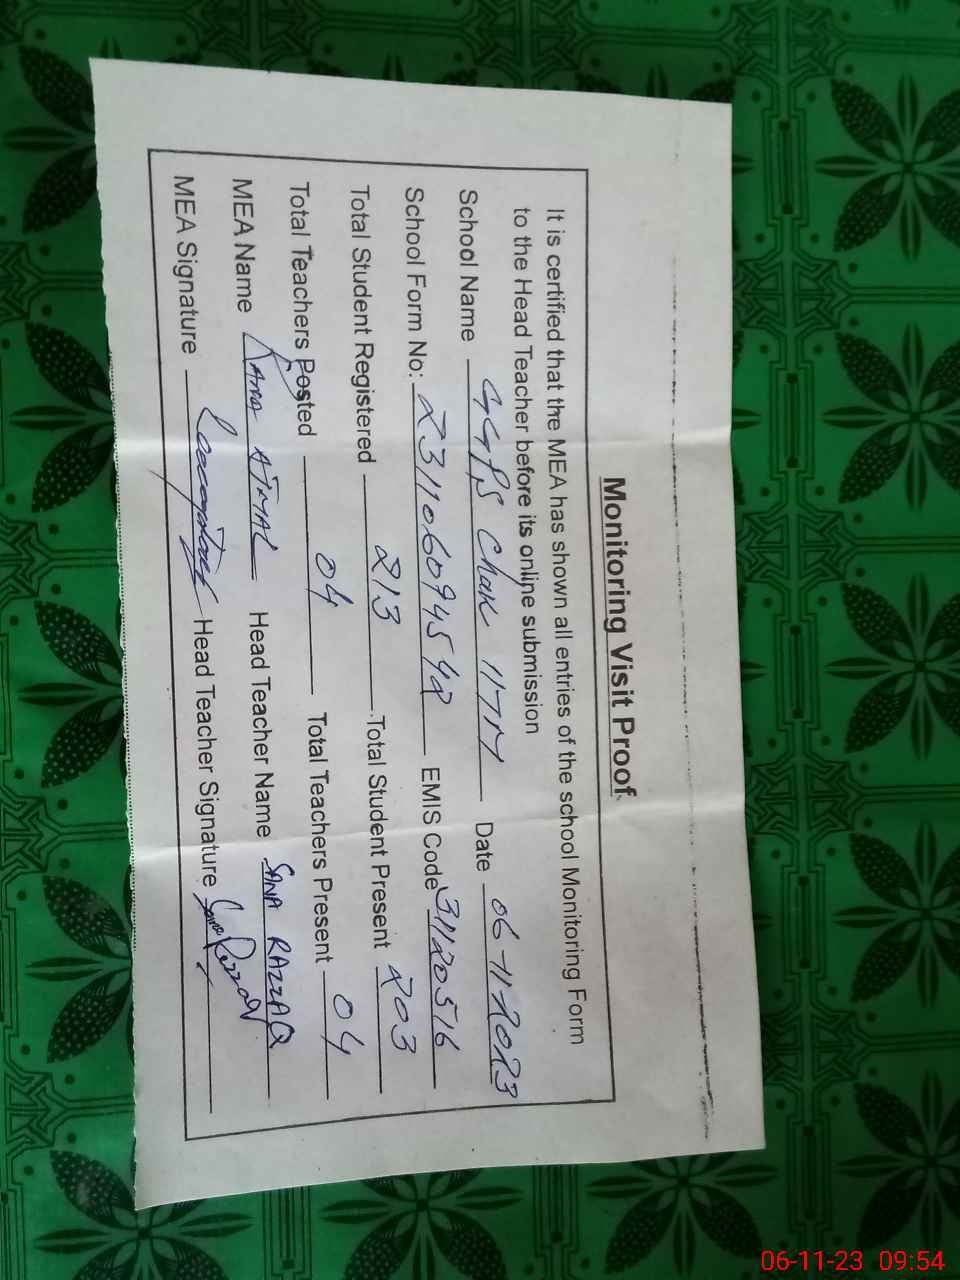 Monitoring Visit Proof
It is certified that the MEA has shown all entries of the school Monitoring Form
to the Head Teacher before its online submission
School Name GGPS Chak 117M Date 06-11-2023
School Form No: 23110609454 EMIS Code 31120516
Total Student Registered 213 Total Student Present 203
Total Teachers Posted 04 Total Teachers Present 04
MEA Name Rana AJMAL Head Teacher Name SANA RAZZAQ
MEA Signature Head Teacher Signature Sana Razzaq
06-11-23 09:54